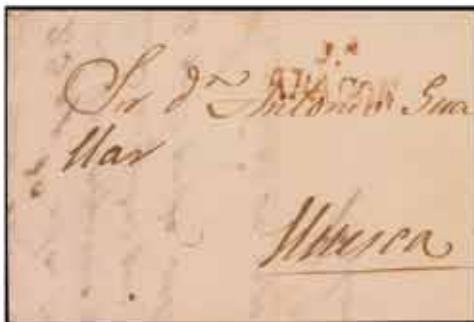 J.ª
ARAGON
Sr. dⁿ Antonio Gua
llar
Huesca